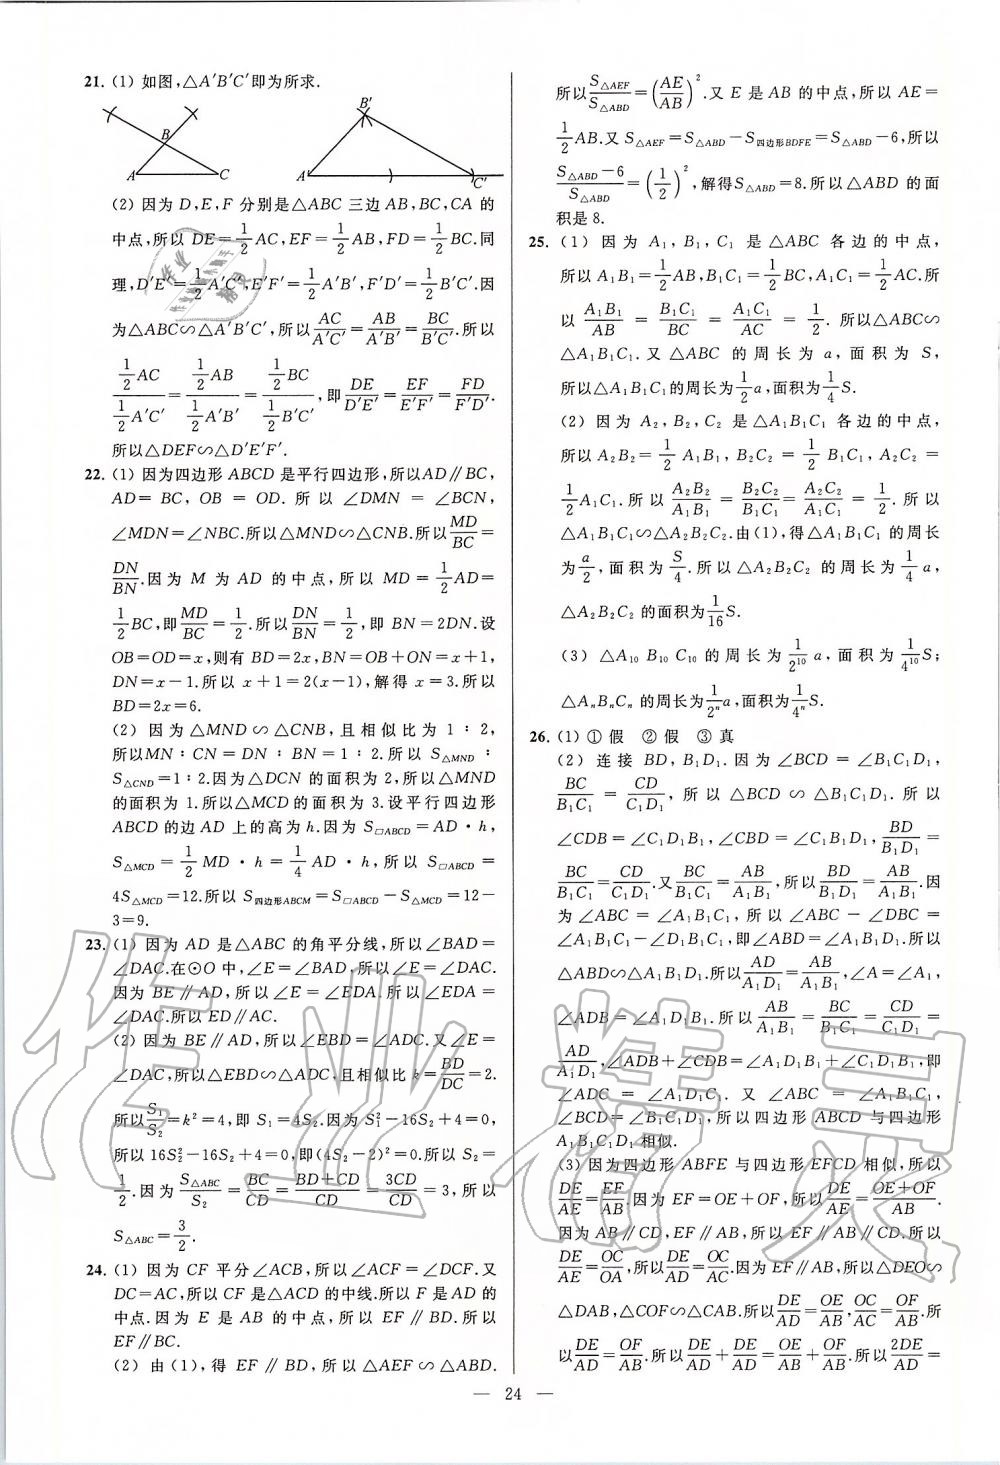 21. (1) 如图,△A′B′C′即为所求.
B
A
C
B′
A′
C′
(2) 因为 D,E,F 分别是△ABC 三边 AB,BC,CA 的
中点,所以 DE=1/2AC,EF=1/2AB,FD=1/2BC.同
理,D′E′=1/2A′C′,E′F′=1/2A′B′,F′D′=1/2B′C′.因
为△ABC∽△A′B′C′,所以AC/A′C′=AB/A′B′=BC/B′C′.所以
(1/2AC)/(1/2A′C′)=(1/2AB)/(1/2A′B′)=(1/2BC)/(1/2B′C′),即DE/D′E′=EF/E′F′=FD/F′D′.
所以△DEF∽△D′E′F′.
22. (1) 因为四边形 ABCD 是平行四边形,所以AD∥BC,
AD= BC, OB = OD. 所以 ∠DMN = ∠BCN,
∠MDN=∠NBC.所以△MND∽△CNB.所以MD/BC=
DN/BN.因为 M 为 AD 的中点,所以 MD=1/2AD=
1/2BC,即MD/BC=1/2.所以DN/BN=1/2,即 BN=2DN.设
OB=OD=x,则有 BD=2x,BN=OB+ON=x+1,
DN=x-1.所以 x+1=2(x-1),解得 x=3.所以
BD=2x=6.
(2) 因为△MND∽△CNB,且相似比为 1∶2,
所以MN∶CN=DN∶BN=1∶2.所以 S△MND∶
S△CND=1∶2.因为△DCN 的面积为 2,所以△MND
的面积为 1.所以△MCD的面积为 3.设平行四边形
ABCD 的边 AD 上的高为 h.因为 S□ABCD=AD·h,
S△MCD=1/2 MD·h=1/4 AD·h,所以 S□ABCD=
4S△MCD=12.所以 S四边形ABCM=S□ABCD-S△MCD=12-
3=9.
23. (1) 因为 AD 是△ABC 的角平分线,所以∠BAD=
∠DAC.在⊙O 中,∠E=∠BAD,所以∠E=∠DAC.
因为 BE∥AD,所以∠E=∠EDA.所以∠EDA=
∠DAC.所以 ED∥AC.
(2) 因为 BE∥AD,所以∠EBD=∠ADC.又∠E=
∠DAC,所以△EBD∽△ADC,且相似比 k=BD/DC=2.
所以S₁/S₂=k²=4,即 S₁=4S₂.因为S₁²-16S₂+4=0,
所以 16S₂²-16S₂+4=0,即(4S₂-2)²=0.所以 S₂=
1/2.因为 S△ABC/S₂=BC/CD=(BD+CD)/CD=3CD/CD=3,所以
S△ABC=3/2.
24. (1) 因为 CF 平分∠ACB,所以∠ACF=∠DCF.又
DC=AC,所以 CF 是△ACD 的中线.所以 F 是 AD 的
中点.因为 E 是 AB 的中点,所以 EF∥BD.所以
EF∥BC.
(2) 由(1),得 EF∥BD,所以△AEF∽△ABD.
所以S△AEF/S△ABD=(AE/AB)².又 E 是 AB 的中点,所以 AE=
1/2AB.又 S△AEF=S△ABD-S四边形BDFE=S△ABD-6,所以
(S△ABD-6)/S△ABD=(1/2)²,解得S△ABD=8.所以△ABD 的面
积是 8.
25. (1) 因为 A₁,B₁,C₁ 是△ABC 各边的中点,
所以 A₁B₁=1/2AB,B₁C₁=1/2BC,A₁C₁=1/2AC.所
以 A₁B₁/AB = B₁C₁/BC = A₁C₁/AC = 1/2. 所以△ABC∽
△A₁B₁C₁.又△ABC 的周长为 a,面积为 S,
所以△A₁B₁C₁的周长为1/2a,面积为1/4S.
(2) 因为 A₂,B₂,C₂ 是△A₁B₁C₁ 各边的中点,
所以 A₂B₂=1/2 A₁B₁,B₂C₂=1/2 B₁C₁,A₂C₂=
1/2A₁C₁.所以 A₂B₂/A₁B₁ = B₂C₂/B₁C₁ = A₂C₂/A₁C₁ = 1/2. 所以
△A₁B₁C₁∽△A₂B₂C₂.由(1),得△A₁B₁C₁ 的周长
为a/2,面积为S/4.所以△A₂B₂C₂ 的周长为1/4 a,
△A₂B₂C₂ 的面积为1/16S.
(3) △A₁₀B₁₀C₁₀ 的周长为1/2¹⁰ a,面积为1/4¹⁰S;
△AₙBₙCₙ 的周长为1/2ⁿa,面积为1/4ⁿS.
26. (1) ①假 ②假 ③真
(2) 连接 BD,B₁D₁.因为∠BCD=∠B₁C₁D₁,
BC/B₁C₁ = CD/C₁D₁,所以△BCD∽△B₁C₁D₁.所以
∠CDB=∠C₁D₁B₁,∠CBD=∠C₁B₁D₁,BD/B₁D₁=
BC/B₁C₁=CD/C₁D₁.又BC/B₁C₁=AB/A₁B₁,所以BD/B₁D₁=AB/A₁B₁.因
为∠ABC=∠A₁B₁C₁,所以∠ABC-∠DBC=
∠A₁B₁C₁-∠D₁B₁C₁,即∠ABD=∠A₁B₁D₁.所以
△ABD∽△A₁B₁D₁.所以AD/A₁D₁=AB/A₁B₁,∠A=∠A₁,
∠ADB=∠A₁D₁B₁.所以 AB/A₁B₁=BC/B₁C₁=CD/C₁D₁=
AD/A₁D₁,∠ADB+∠CDB=∠A₁D₁B₁+∠C₁D₁B₁,即
∠ADC = ∠A₁D₁C₁. 又 ∠ABC = ∠A₁B₁C₁,
∠BCD=∠B₁C₁D₁,所以四边形 ABCD 与四边形
A₁B₁C₁D₁ 相似.
(3) 因为四边形 ABFE 与四边形 EFCD 相似,所以
DE/AE=EF/AB.因为 EF=OE+OF,所以DE/AE=(OE+OF)/AB.
因为 AB∥CD,EF∥AB,所以 EF∥AB∥CD.所以
DE/AE=OC/OA,所以DE/AD=OC/AC.因为EF∥AB,所以△DEO∽
△DAB,△COF∽△CAB.所以DE/AD=OE/AB,OC/AC=OF/AB.所
以DE/AD=OF/AB.所以DE/AD+DE/AD=OE/AB+OF/AB.所以2DE/AD=
— 24 —
作业精灵